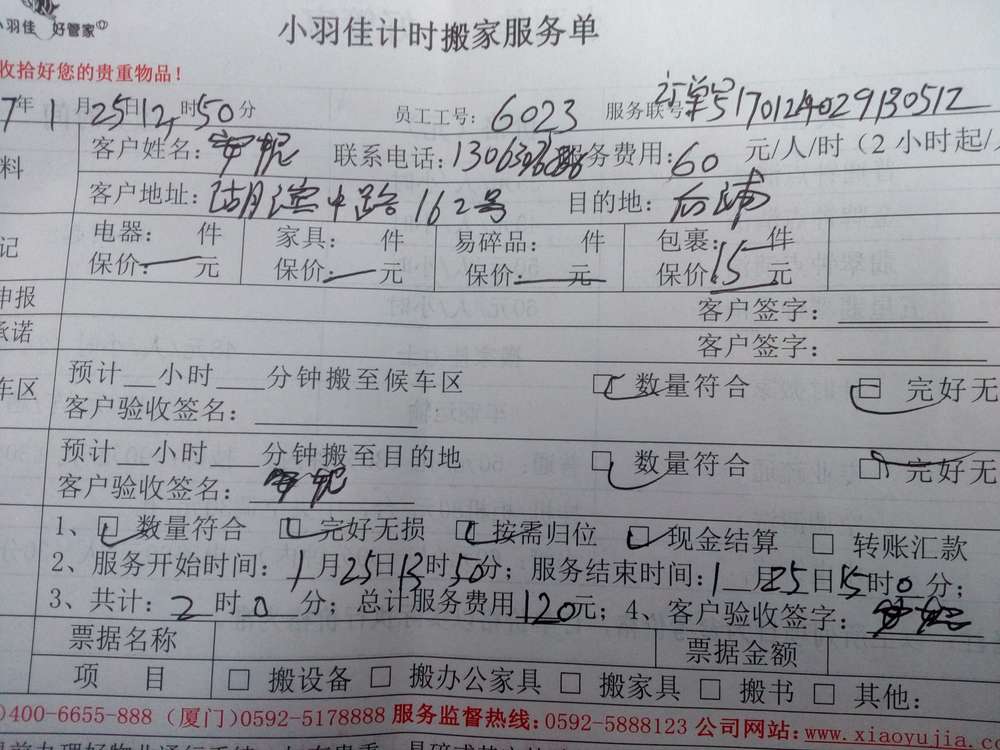 小羽佳 好管家
小羽佳计时搬家服务单
收拾好您的贵重物品！
7年1月25日12时50分 员工工号：6023 服务联号 订单号170124029130512
料 客户姓名： 联系电话：1306 服务费用：60 元/人/时（2小时起/
客户地址：湖滨中路162号 目的地：后埔
记 电器： 件 家具： 件 易碎品： 件 包裹：15件
保价：— 元 保价：— 元 保价：— 元 保价 元
申报 客户签字：
承诺 客户签字：
车区 预计__小时____分钟搬至候车区 □ 数量符合 □ 完好无
客户验收签名：
预计__小时____分钟搬至目的地 □ 数量符合 □ 完好无
客户验收签名：
1、□ 数量符合 □ 完好无损 □ 按需归位 □ 现金结算 □ 转账汇款
2、服务开始时间：1月25日13时50分；服务结束时间：1月25日15时0分；
3、共计：2时0分；总计服务费用120元；4、客户验收签字：
票据名称 票据金额
项 目 □ 搬设备 □ 搬办公家具 □ 搬家具 □ 搬书 □ 其他：
)400-6655-888（厦门）0592-5178888 服务监督热线：0592-5888123 公司网站：www.xiaoyujia.c